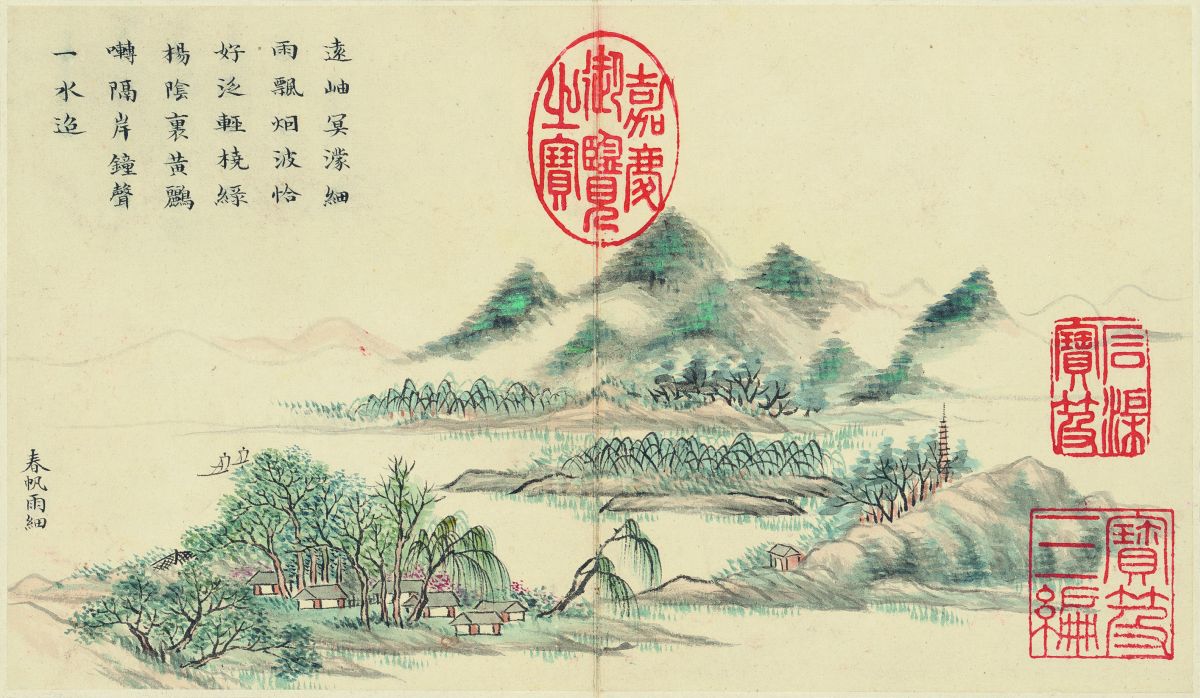 遠岫冥濛細
雨飄烟波恰
好泛輕橈綠
楊陰裏黃鸝
囀隔岸鐘聲
一水迢
春帆雨細
嘉慶
御覽
之寶
石渠
寶笈
寶笈
三編